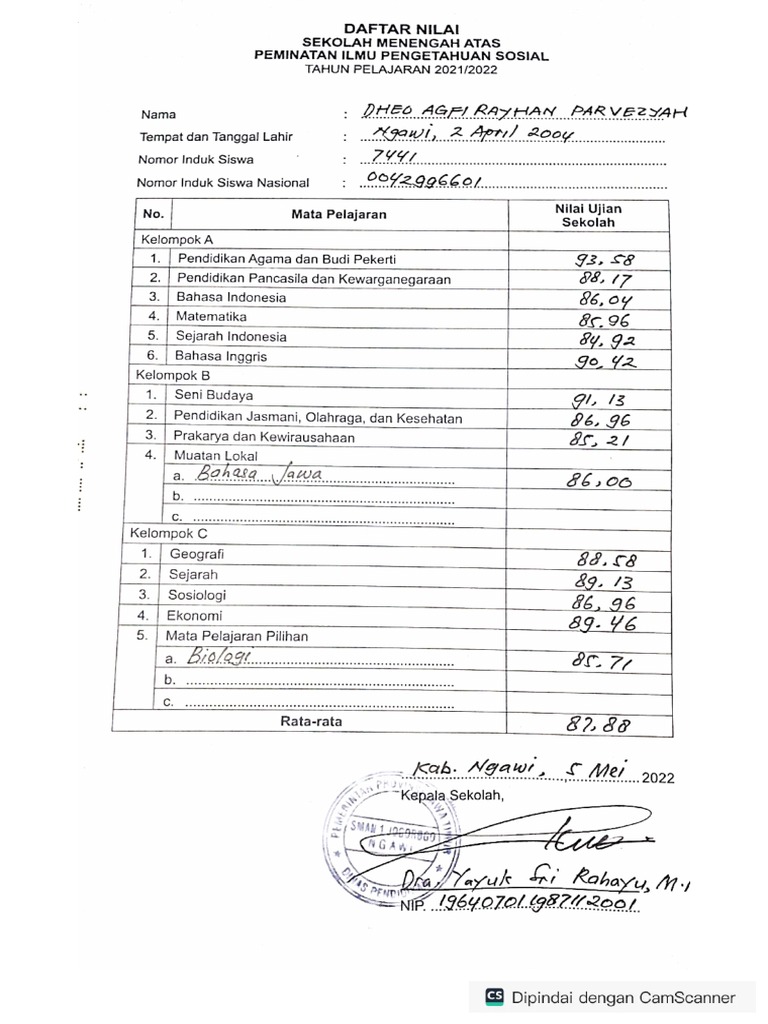 DAFTAR NILAI
SEKOLAH MENENGAH ATAS
PEMINATAN ILMU PENGETAHUAN SOSIAL
TAHUN PELAJARAN 2021/2022
Nama : DHEO AGFI RAYHAN PARVEZYAH
Tempat dan Tanggal Lahir : Ngawi, 2 April 2004
Nomor Induk Siswa : 7441
Nomor Induk Siswa Nasional : 0042996601
No. Mata Pelajaran Nilai Ujian Sekolah
Kelompok A
1. Pendidikan Agama dan Budi Pekerti 93,58
2. Pendidikan Pancasila dan Kewarganegaraan 88,17
3. Bahasa Indonesia 86,04
4. Matematika 85.96
5. Sejarah Indonesia 84,92
6. Bahasa Inggris 90,42
Kelompok B
1. Seni Budaya 91,13
2. Pendidikan Jasmani, Olahraga, dan Kesehatan 86,96
3. Prakarya dan Kewirausahaan 85,21
4. Muatan Lokal
a. Bahasa Jawa 86,00
b.
c.
Kelompok C
1. Geografi 88.58
2. Sejarah 89.13
3. Sosiologi 86,96
4. Ekonomi 89.46
5. Mata Pelajaran Pilihan
a. Biologi 85.71
b.
c.
Rata-rata 87,88
Kab. Ngawi, 5 Mei 2022
Kepala Sekolah,
PEMERINTAH PROVINSI JAWA TIMUR
SMAN 1
NGAWI
DINAS PENDIDIKAN
Dra. Yayuk Sri Rahayu, M.
NIP. 196407011987112001
CS Dipindai dengan CamScanner